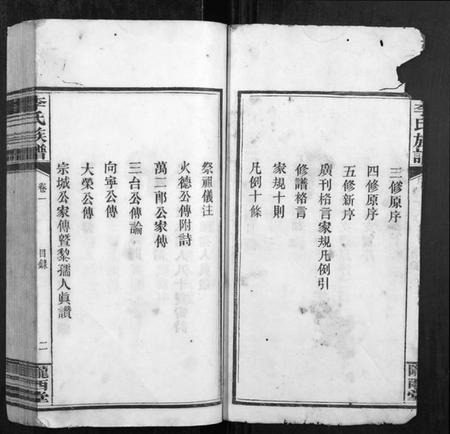 李氏族譜
三修原序
四修原序
五修新序
廣刊格言家規凡例引
修譜格言
家規十則
凡例十條
隴西堂
祭祖儀注
火德公傳附詩
萬二郎公家傳
三台公傳論
向寧公傳
大榮公傳
宗城公家傳暨黎孺人眞讚
李氏族譜
卷一
目錄
二
隴西堂